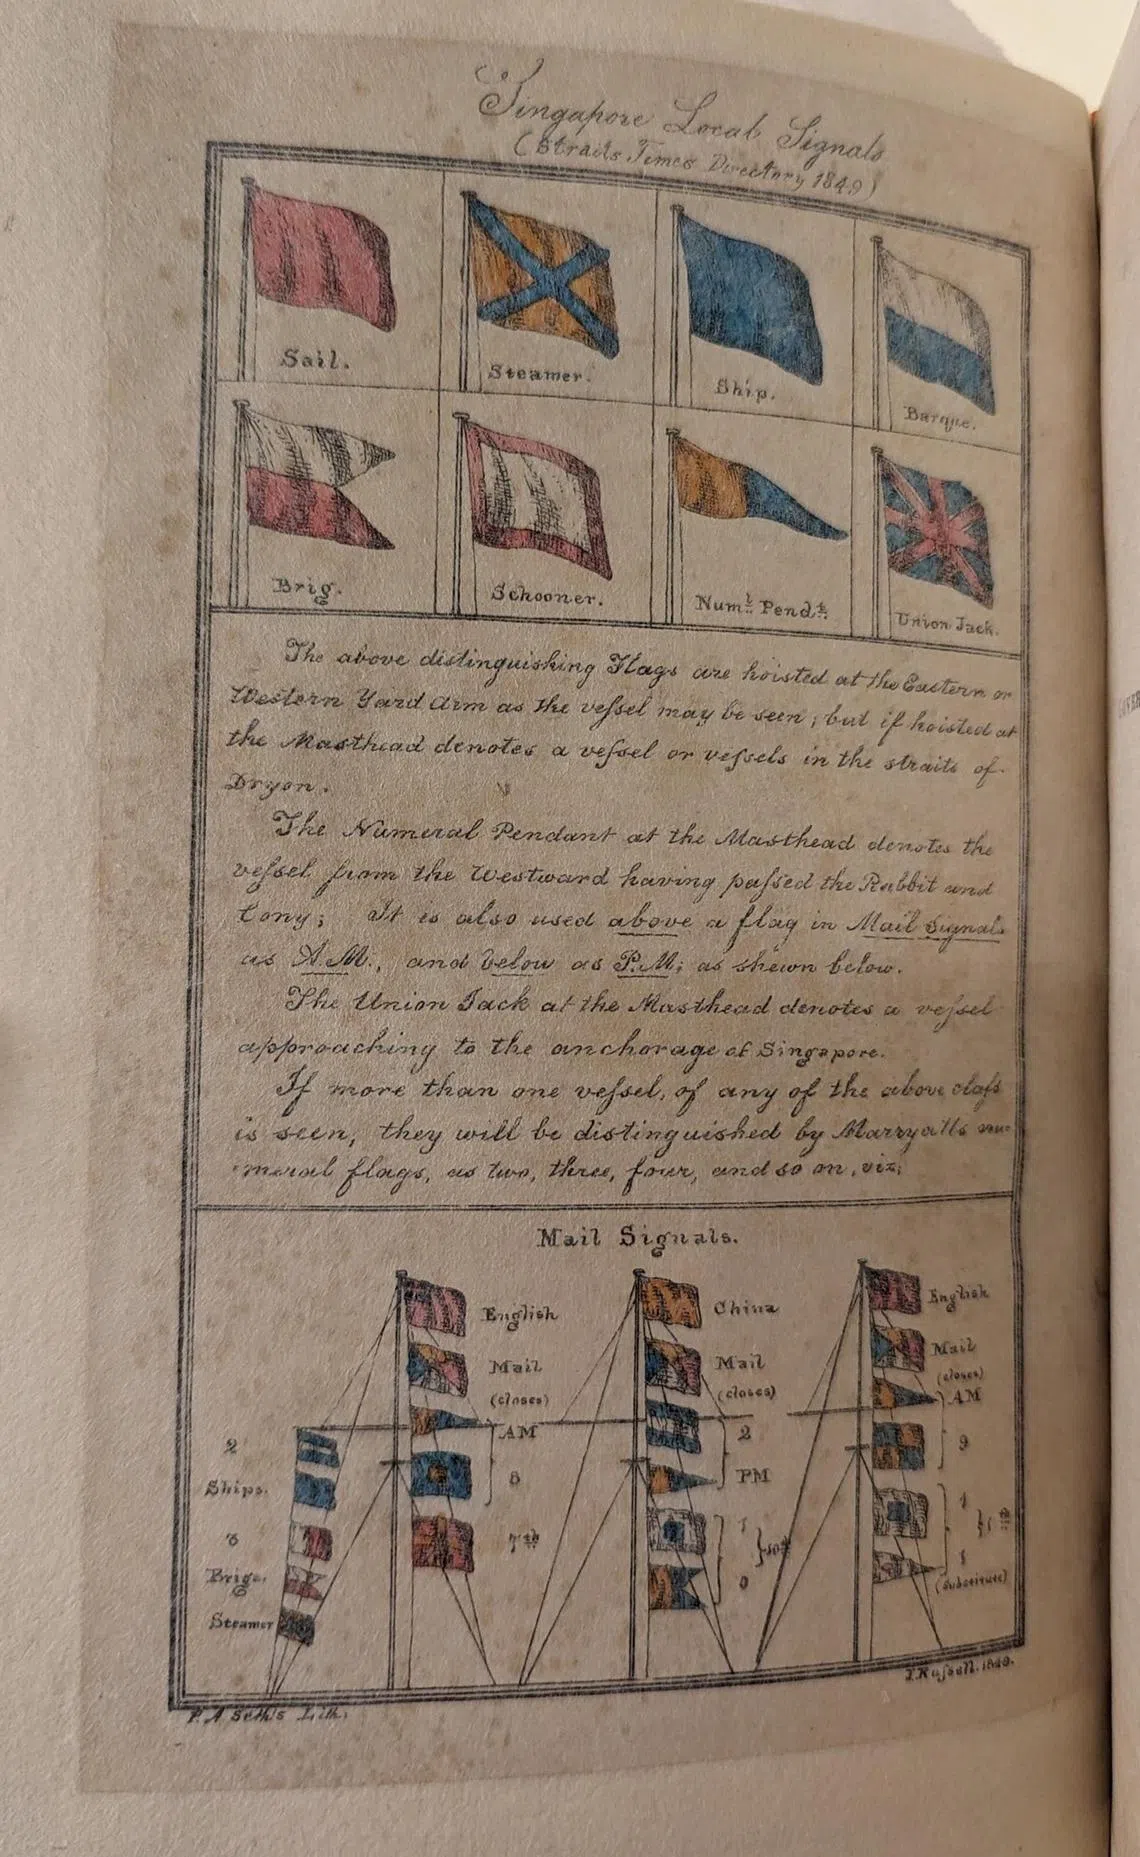 Singapore Local Signals
(Straits Times Directory 1849)
Sail.
Steamer.
Ship.
Barque.
Brig.
Schooner.
Numl. Pendt.
Union Jack.
The above distinguishing Flags are hoisted at the Eastern or
Western Yard Arm as the veſsel may be seen; but if hoisted at
the Masthead denotes a veſsel or veſsels in the straits of
Dryon.
The Numeral Pendant at the Masthead denotes the
veſsel from the Westward having paſsed the Rabbit and
Cony; It is also used above a flag in Mail Signals
as A.M., and below as P.M; as shewn below.
The Union Jack at the Masthead denotes a veſsel
approaching to the anchorage of Singapore.
If more than one veſsel, of any of the above claſs
is seen, they will be distinguished by Marryatts nu-
meral flags, as two, three, four, and so on, viz;
Mail Signals.
English
Mail
(closes)
AM
8
7th
2
Ships.
3
Brigs.
Steamer
China
Mail
(closes)
2
PM
1
0
10th
English
Mail
(closes)
AM
9
1
1
(substitute)
P. A Seth's Lith.
J. Ruſsell. 1849.